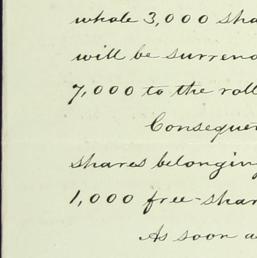 whole 3,000 sha
will be surrend
7,000 to the roll
Consequen
shares belonging
1,000 free-shar
As soon a